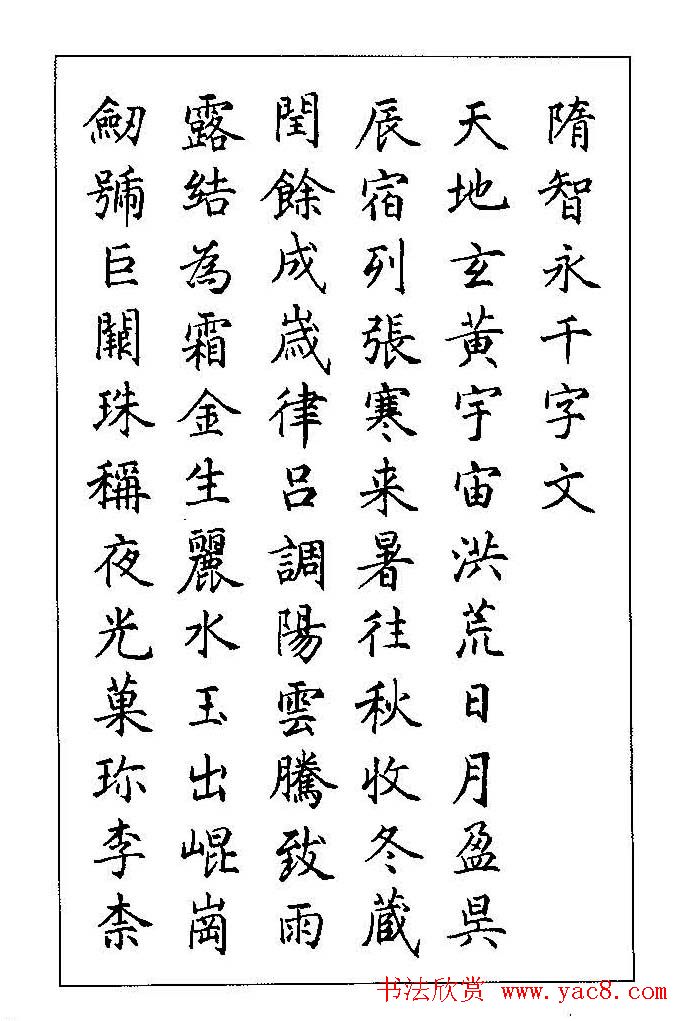 隋智永千字文
天地玄黃宇宙洪荒日月盈昃
辰宿列張寒来暑往秋收冬蔵
閏餘成嵗律吕調陽雲騰致雨
露結為霜金生麗水玉出崐崗
劒號巨闕珠稱夜光菓珎李柰
书法欣赏 www.yac8.com